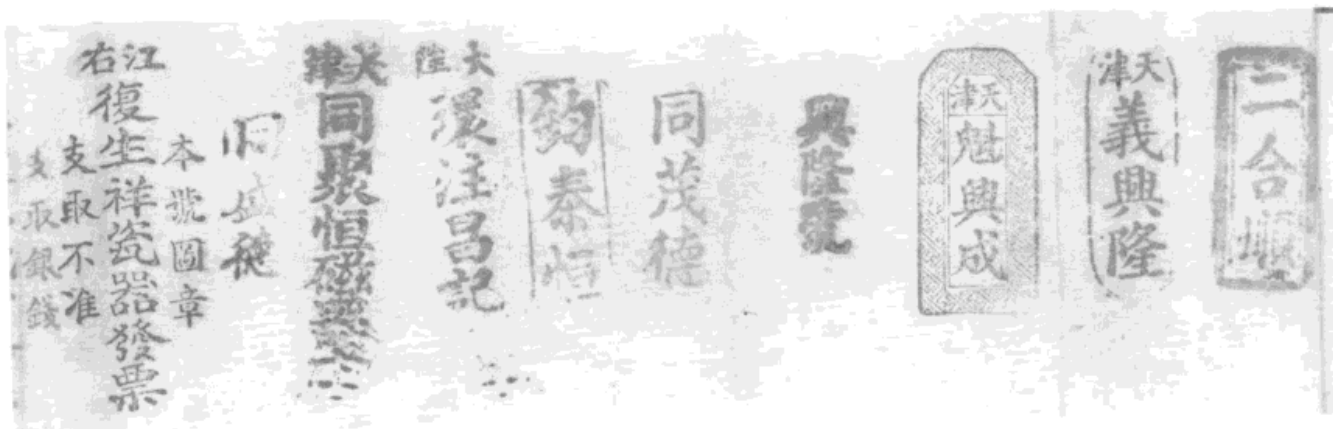 二合順
天津
義興隆
天津
魁興成
興隆號
同茂德
鈞泰恒
大陸
滙注昌記
天津
同聚恒磁
同盛
本號圖章
江右
復生祥瓷器發票
支取不准
支取銀錢